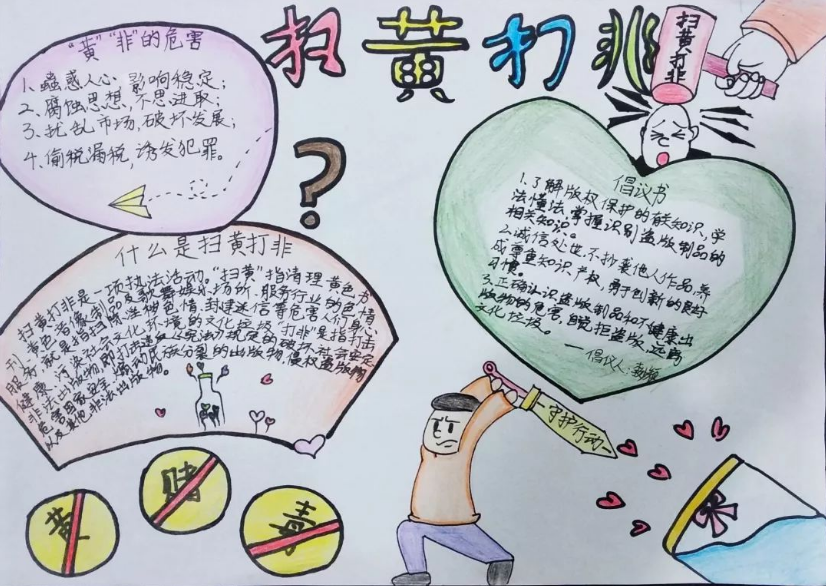 扫黄打非
扫黄打非
"黄""非"的危害
1、蛊惑人心,影响稳定;
2、腐蚀思想,不思进取;
3、扰乱市场,破坏发展;
4、偷税漏税,诱发犯罪。
?
倡议书
1.了解版权保护的有关知识,学
法懂法,掌握识别盗版制品的
相关知识。
2.诚信处世,不抄袭他人作品,养
成尊重知识产权,勇于创新的良好
习惯。
3.正确认识盗版制品和不健康出
版物的危害,自觉拒盗版,远离
文化垃圾。
—倡议人:
什么是扫黄打非
扫黄打非是一项执法活动。"扫黄"指清理黄色书
刊、黄色音像制品及歌舞娱乐场所、服务行业的色情
服务,就是指扫除淫秽色情、封建迷信等危害人们身心
健康、污染社会文化环境的文化垃圾。"打非"是指打击
非法出版物,即打击违反宪法规定的破坏社会安定
危害国家安全,煽动民族分裂的出版物,侵权盗版物
以及其他非法出版物。
守护行动
黄
赌
毒